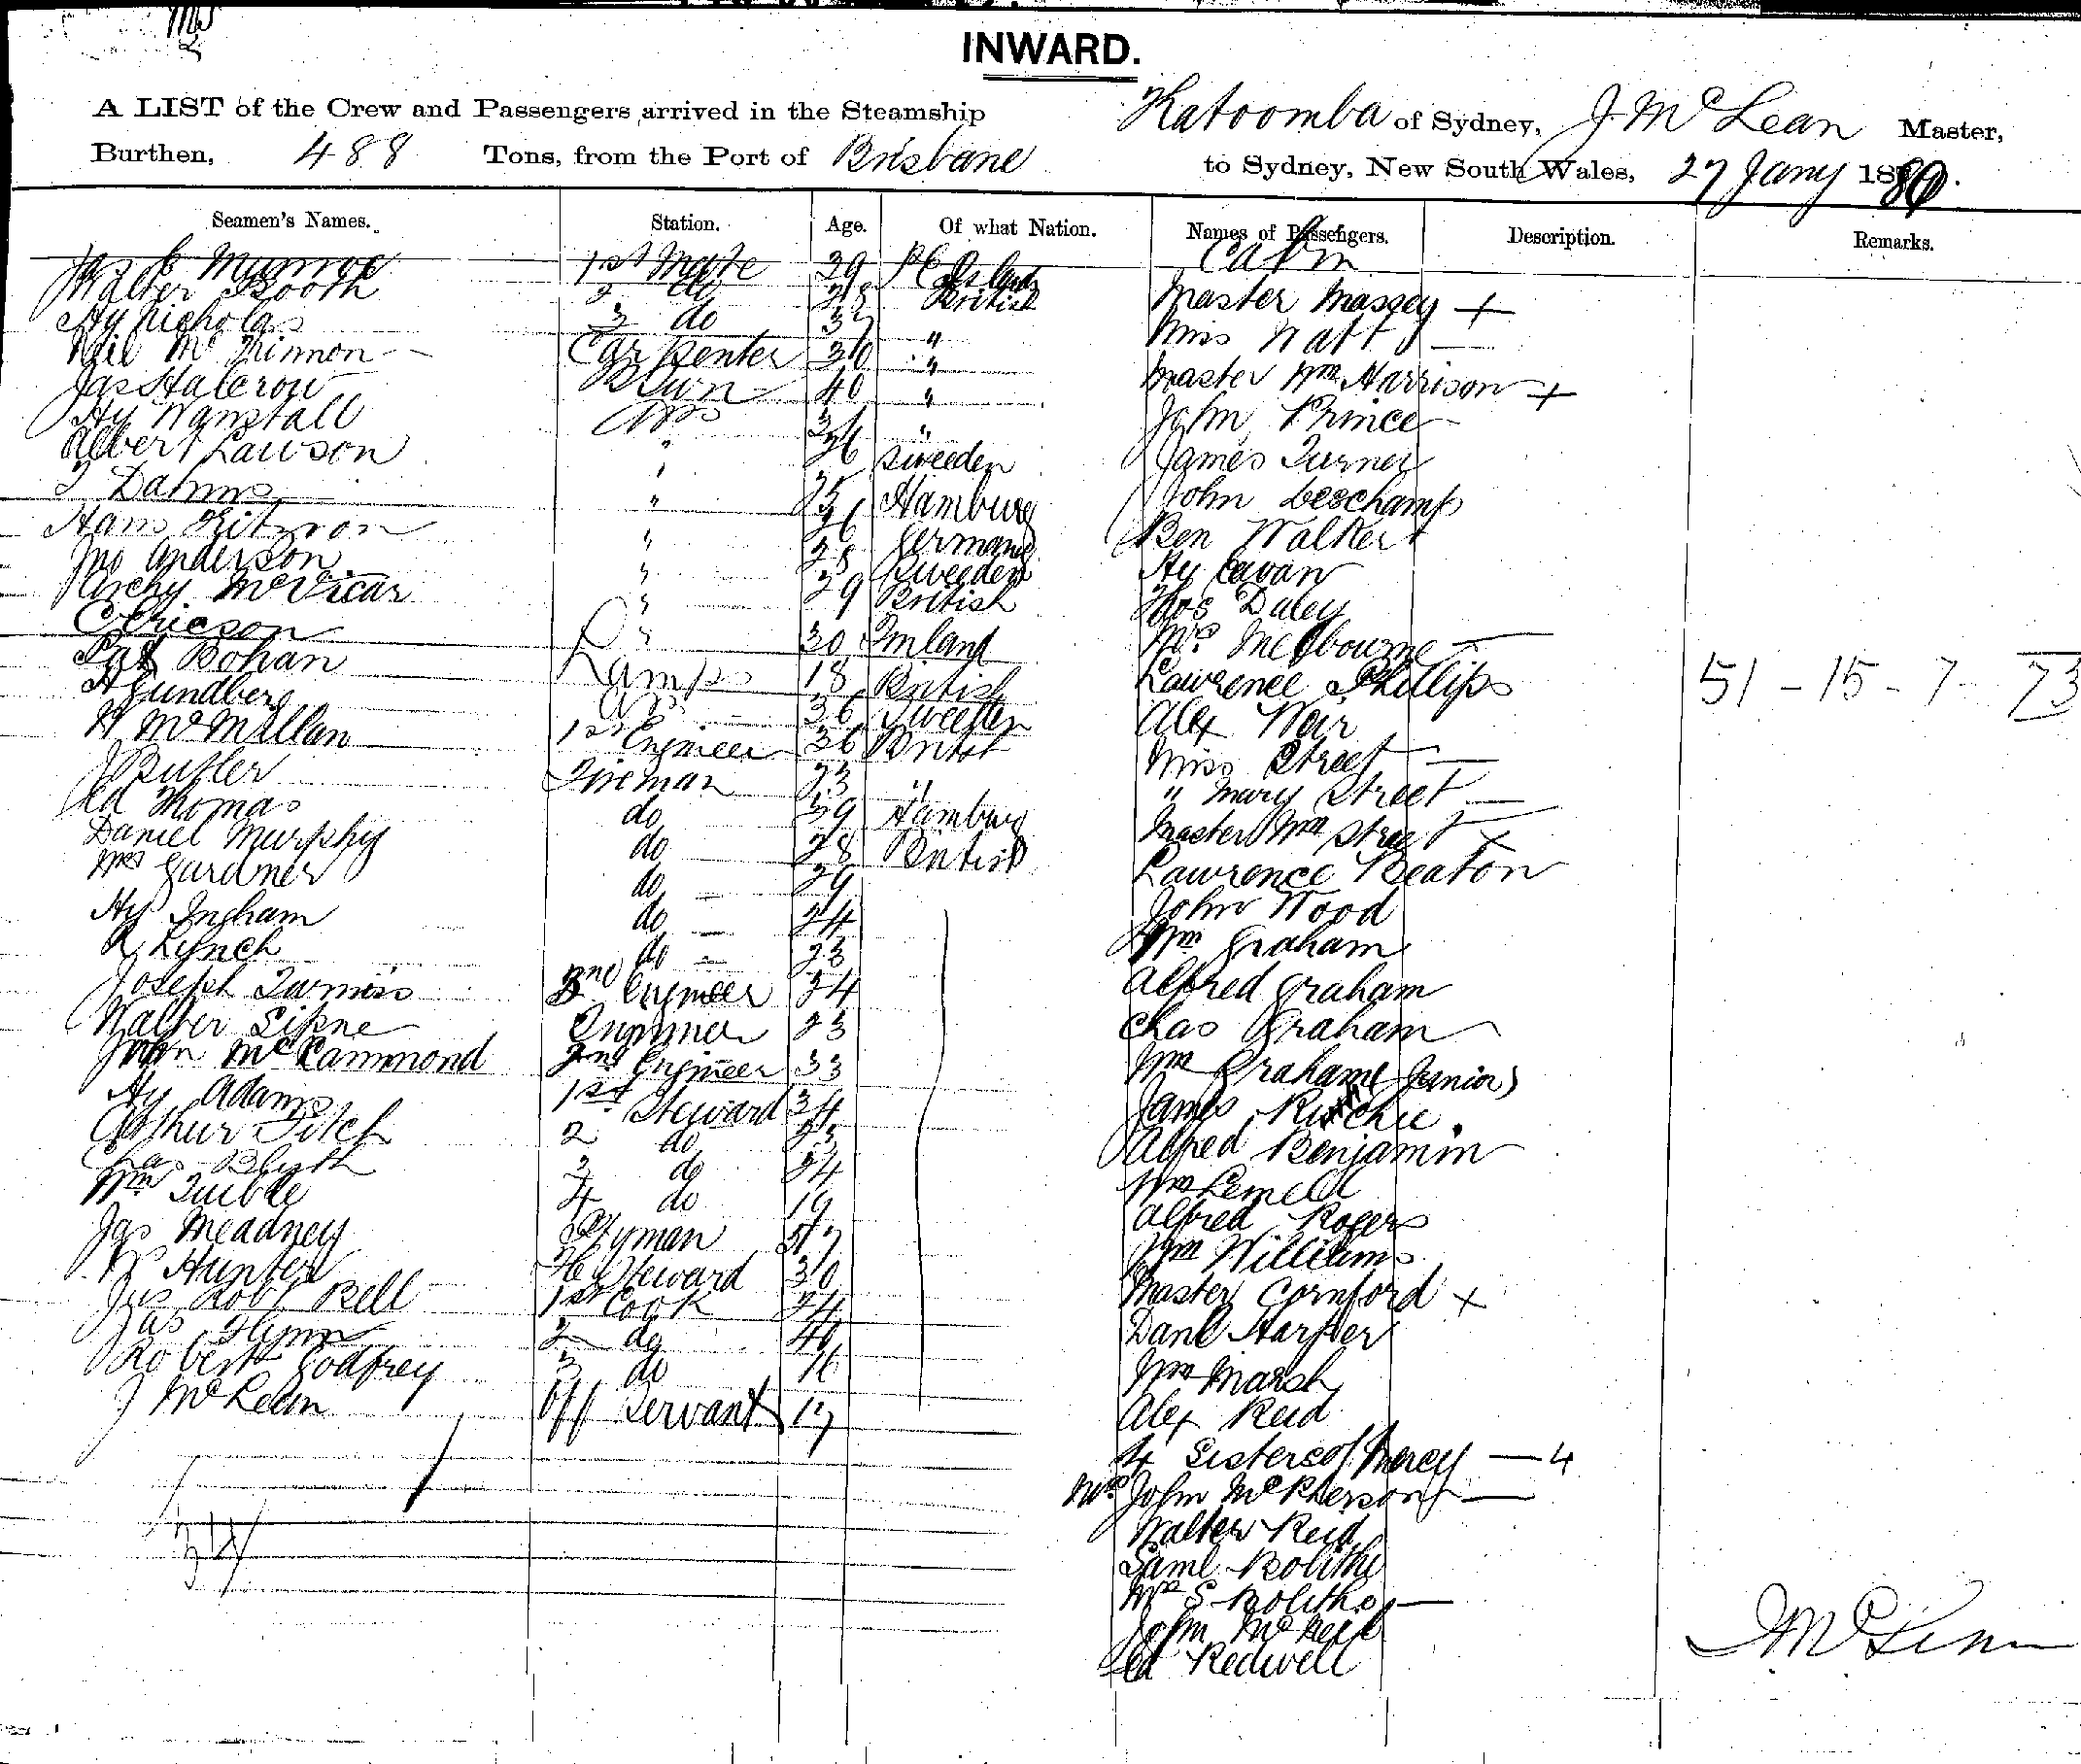 INWARD.
A LIST of the Crew and Passengers arrived in the Steamship Katoomba of Sydney, J. McLean Master,
Burthen, 488 Tons, from the Port of Brisbane to Sydney, New South Wales, 27 Jany 1880.
Seamen's Names. Station. Age. Of what Nation. Names of Passengers. Description. Remarks.
Munroe 1st Mate 29 Cabin
Walter Booth 2 do 28 British Master Massey +
Hy Nicholas 3 do 37 " Miss Watt —
Neil McKinnon Carpenter 30 " Master Wm Harrison +
Jas Halcrow 40 " John Prince
Hy Wanstall AB " James Turner
Albert Lawson " 26 Sweeden John Deschamp
Dahms " 25 Hamburg Ben Walker
Hans " 26 Germany Hy Cavan
Jno Anderson " 28 Sweeden Thos Daley
Archy McVicar " 29 British Mrs Melbourne —
C Ericson " 30 Finland Lawrence Phillips
Pat Bohan Lamps 18 British Alex Weir
A Sundberg AB 36 Sweeden Miss Street —
McMillan 1st Engineer 36 British " Mary Street —
J Butler Fireman 23 " Master Wm Street +
Ed Thomas do 39 Hamburg Lawrence Beaton
Daniel Murphy do 28 British John Wood
Gardner do 29 Wm Graham
Hy Ingham do 24 Alfred Graham
R Lynch do 23 Chas Graham
Joseph Engineer 34 Wm Graham Junior
Walter 23 James Ritchie
John McCammond 2nd Engineer 33 Alfred Benjamin
Hy Adams 1st Steward 34 Wm
Arthur Fitch 2 do 23 Alfred Rogers
Chas 3 do 24 Wm Williams
Wm 4 do 19 Master Cornford +
Jas Meadney Pyman Danl Harper
Hunter Steward 30 Wm Marsh
Jas Robt Bell 1st Cook 24 Alex Reid
Jas Flynn 2 do 40 4 Sisters of Mercy — 4
Robert Godfrey 3 do Mrs John McPherson —
J McLean Off Servant 17 Walter Reid
Saml Bolitho
Mrs S Bolitho —
John McNeil
Ed Redwell
51 - 15 - 7 - 73
34
J McLean